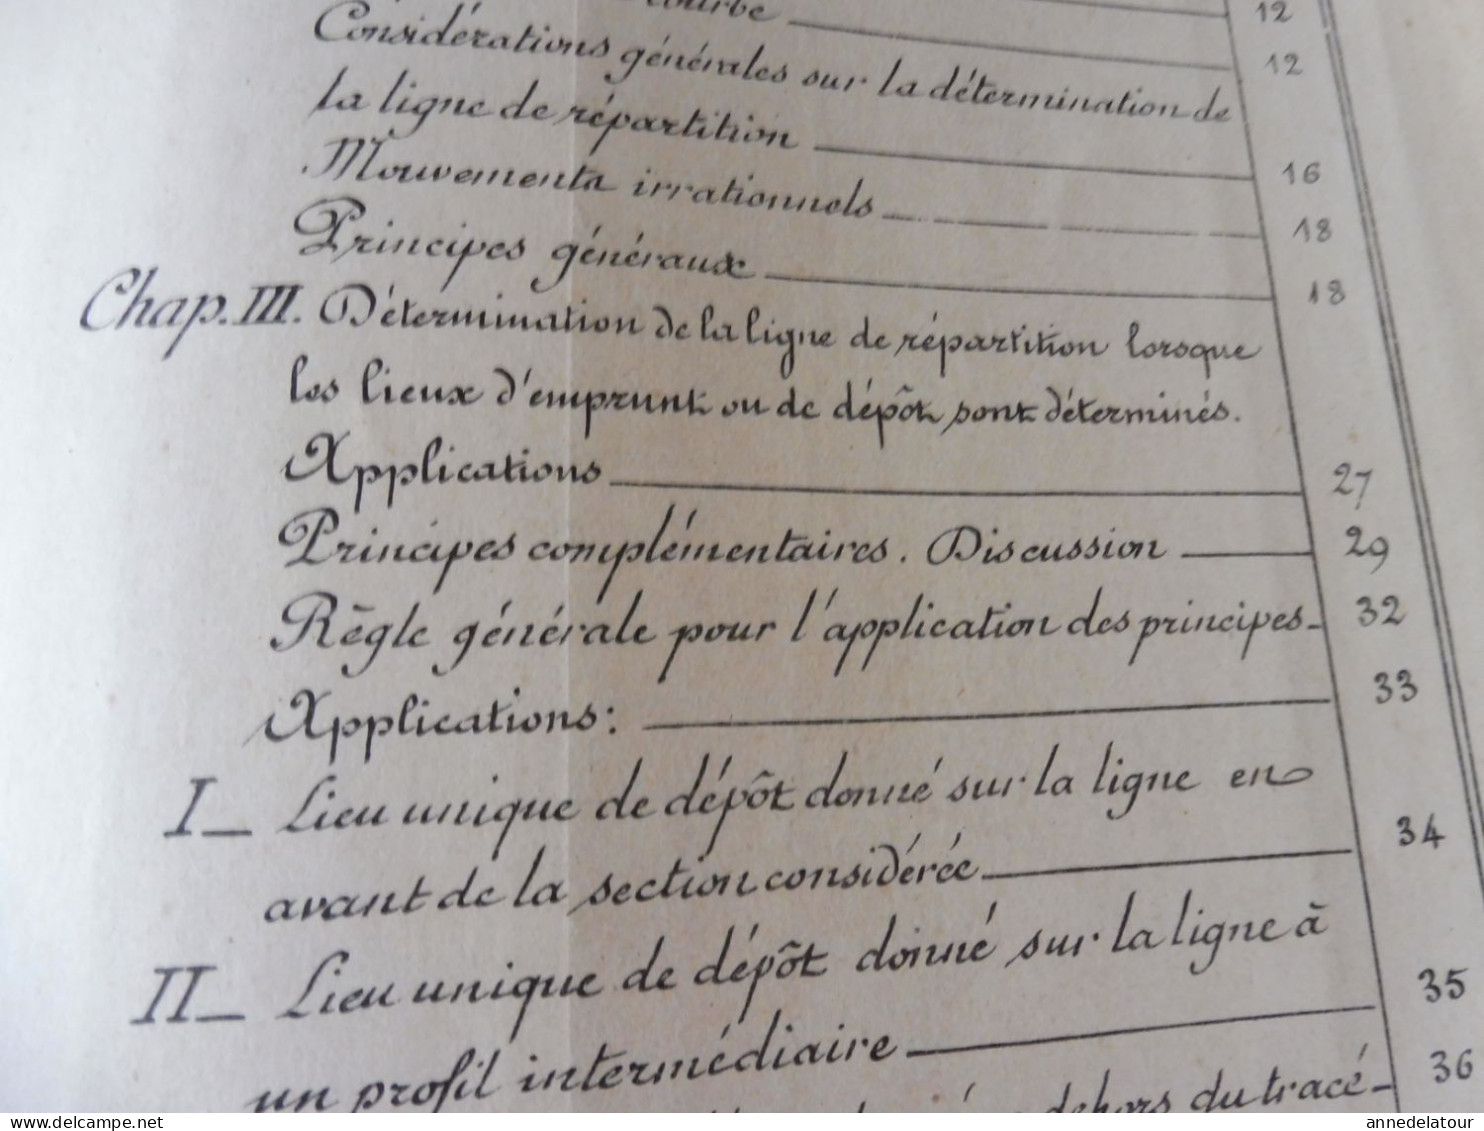 courbe 12
12
Considérations générales sur la détermination de
la ligne de répartition 16
Mouvements irrationnels 18
Principes généraux 18
Chap. III. Détermination de la ligne de répartition lorsque
les lieux d'emprunt ou de dépôt sont déterminés.
Applications 27
Principes complémentaires. Discussion 29
Règle générale pour l'application des principes 32
Applications: 33
I_ Lieu unique de dépôt donné sur la ligne en
avant de la section considérée 34
II_ Lieu unique de dépôt donné sur la ligne à
un profil intermédiaire 35
dehors du tracé 36
www.delcampe.net
annedelatour